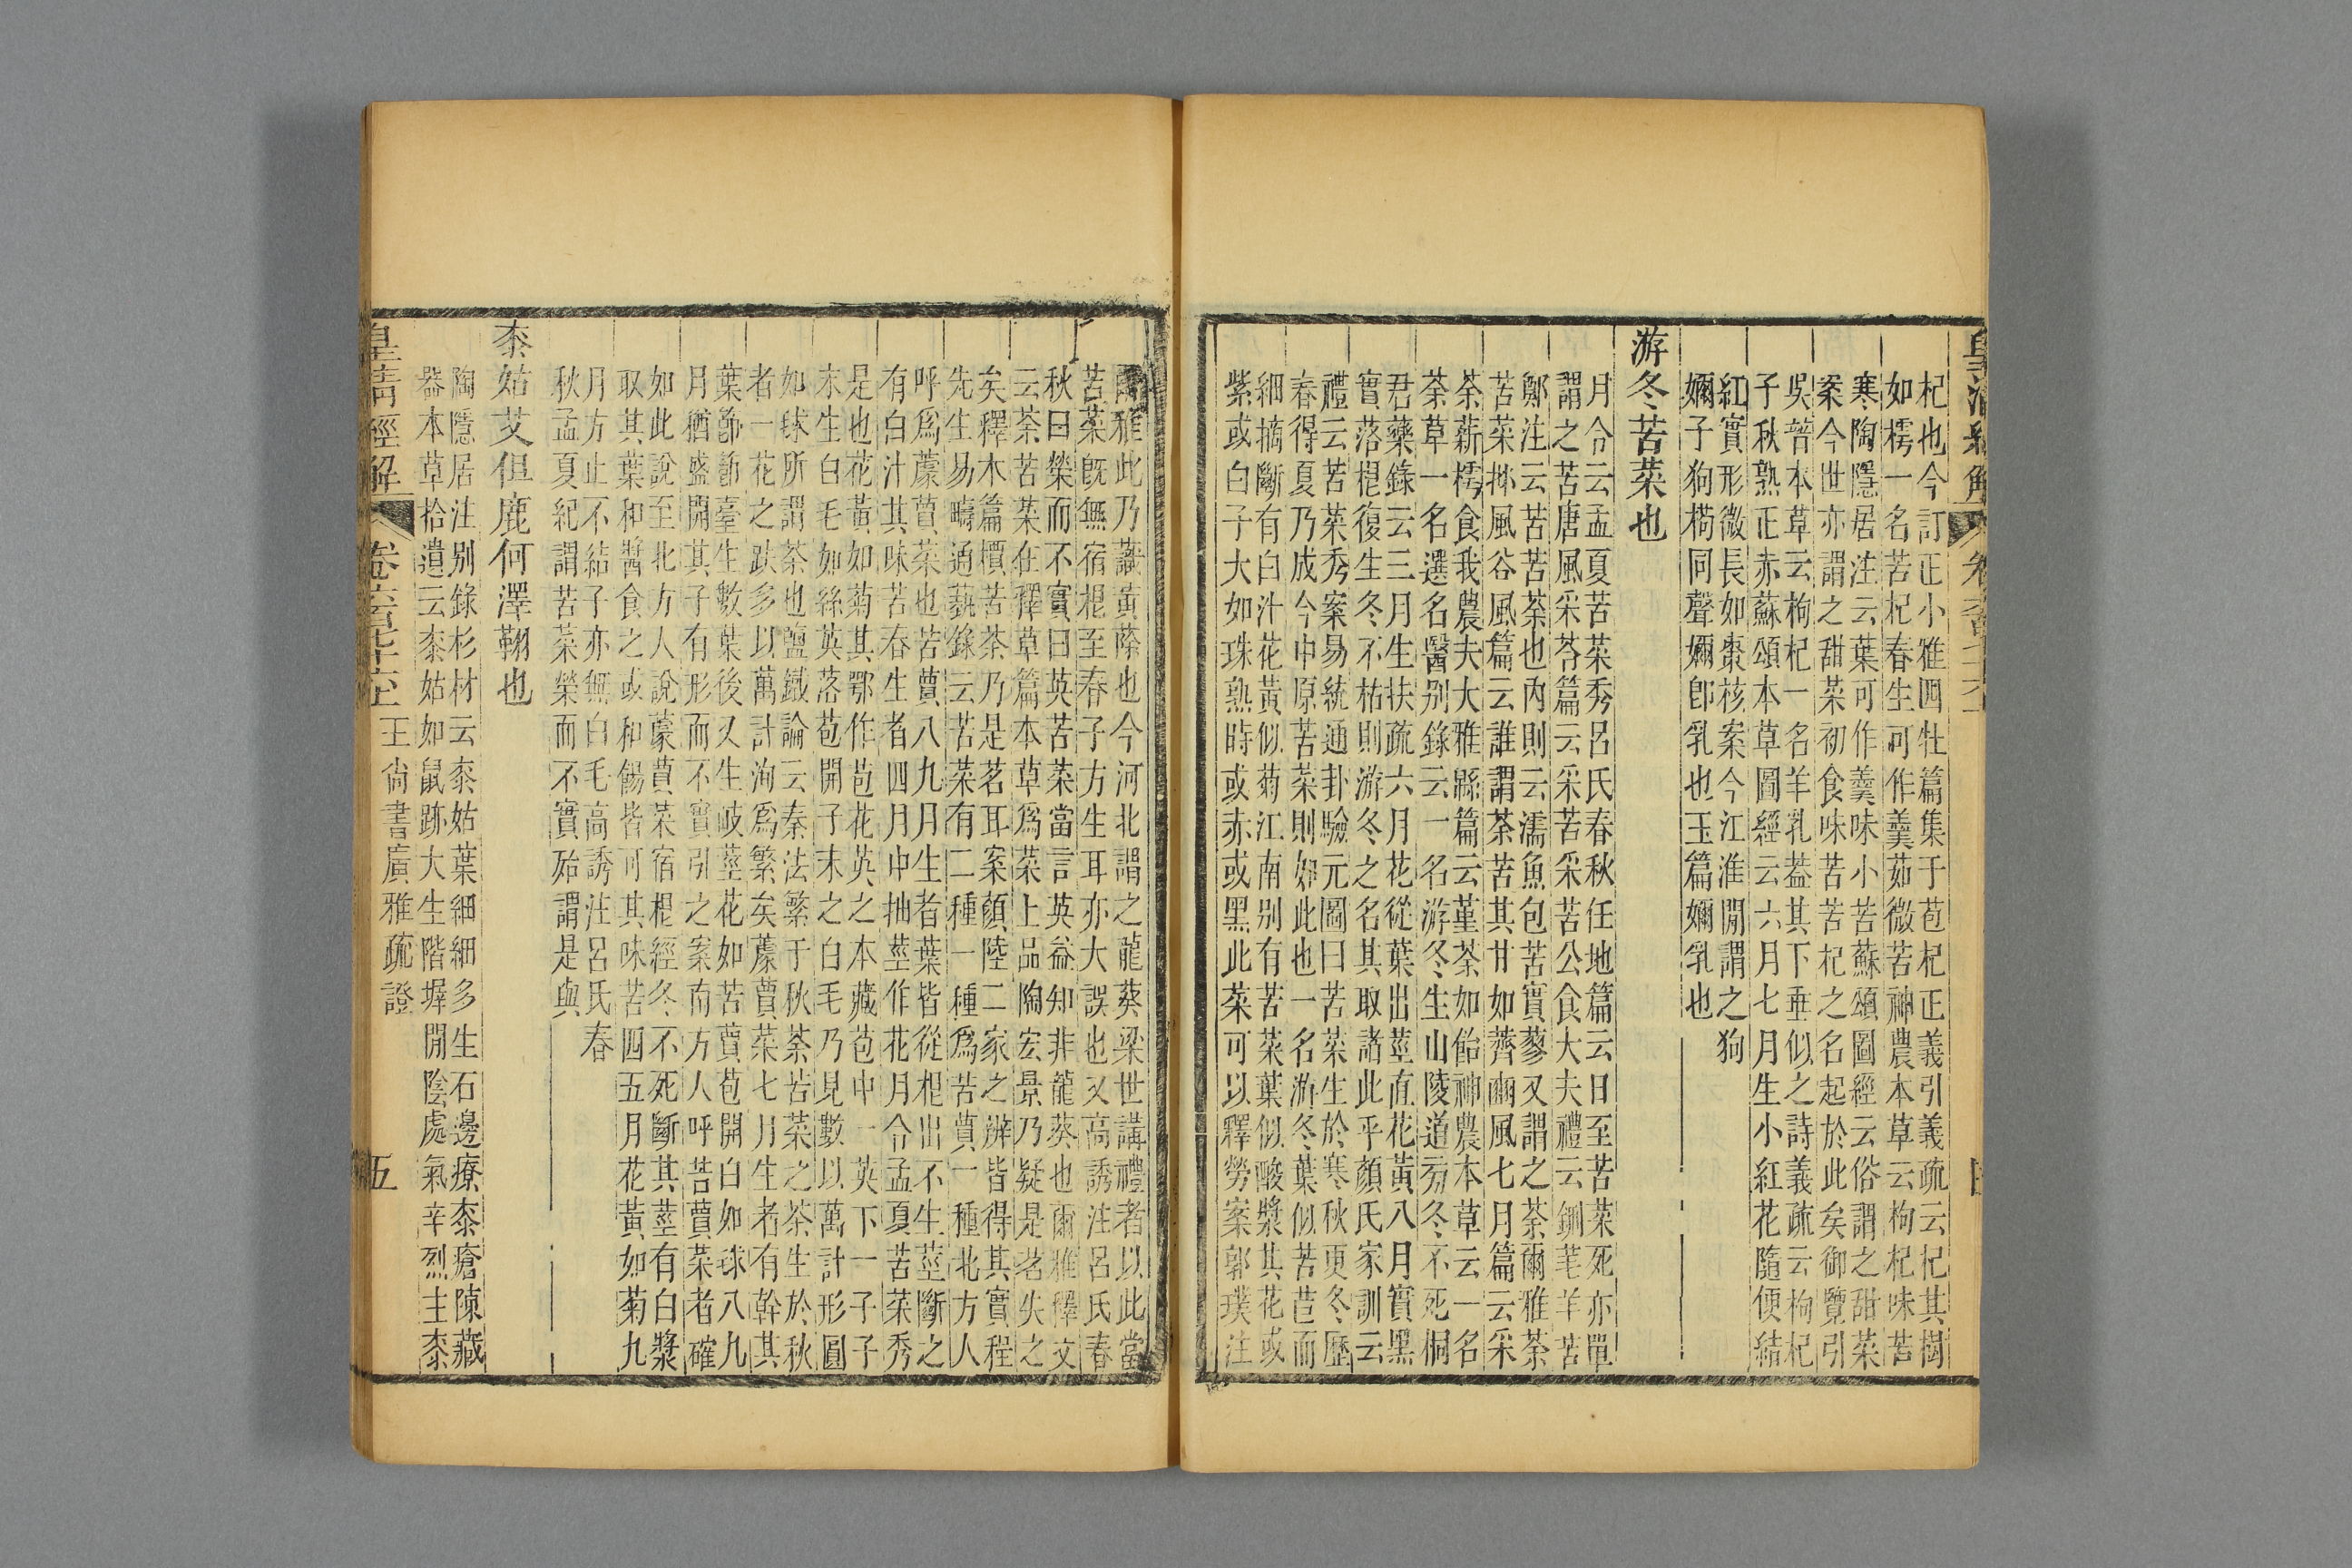 杞也今訂正小雅四牡篇集于苞杞正義引義疏云杞其樹
如樗一名苦杞春生可作羹茹微苦神農本草云枸杞味苦
寒陶隱居注云葉可作羹味小苦蘇頌圖經云俗謂之甜菜
案今世亦謂之甜菜初食味苦苦杞之名起於此矣御覽引
吳普本草云枸杞一名羊乳葢其下垂似之詩義疏云枸杞
子秋熟正赤蘇頌本草圖經云六月七月生小紅花隨便結
紅實形微長如棗核案今江淮閒謂之狗
嬭子狗枸同聲嬭卽乳也玉篇嬭乳也
游冬苦菜也
月令云孟夏苦菜秀呂氏春秋任地篇云日至苦菜死亦單
謂之苦唐風采苓篇云采苦采苦公食大夫禮云鉶芼羊苦
鄭注云苦苦荼也內則云濡魚包苦實蓼又謂之荼爾雅荼
苦菜邶風谷風篇云誰謂荼苦其甘如薺豳風七月篇云采
荼薪樗食我農夫大雅緜篇云堇荼如飴神農本草云一名
荼草一名選名醫別錄云一名游冬生山陵道旁冬不死桐
君藥錄云三月生扶疏六月花從葉出莖直花黃八月實黑
實落根復生冬不枯則游冬之名其取諸此乎顏氏家訓云
禮云苦菜秀案易統通卦驗元圖曰苦菜生於寒秋更冬歷
春得夏乃成今中原苦菜則如此也一名游冬葉似苦苣而
細摘斷有白汁花黃似菊江南別有苦菜葉似酸漿其花或
紫或白子大如珠熟時或赤或黑此菜可以釋勞案郭璞注
爾雅此乃蘵黃蒢也今河北謂之龍葵梁世講禮者以此當
苦菜旣無宿根至春子方生耳亦大誤也又高誘注呂氏春
秋曰榮而不實曰英苦菜當言英益知非龍葵也爾雅釋文
云荼苦菜在釋草篇本草爲菜上品陶宏景乃疑是茗失之
矣釋木篇檟苦荼乃是茗耳案顏陸二家之辨皆得其實程
先生易疇通藝錄云苦菜有二種一種爲苦蕒一種北方人
呼爲藘蕒菜也苦蕒八九月生者葉皆從根出不生莖斷之
有白汁其味苦春生者四月中抽莖作花月令孟夏苦菜秀
是也花黃如菊其鄂作苞花英之本藏苞中一英下一子子
末生白毛如絲英落苞開子末之白毛乃見數以萬計形圓
如毬所謂荼也鹽鐵論云秦法繁于秋荼苦菜之荼生於秋
者一花之跌多以萬計洵爲繁矣藘蕒菜七月生者有幹其
葉節節臺生數葉後又生岐莖花如苦蕒苞開白如毬八九
月稍盛開其子有形而不實引之案南方人呼苦蕒菜者確
如此說至北方人說藘蕒菜宿根經冬不死斷其莖有白漿
取其葉和醬食之或和餳皆可其味苦四五月花黃如菊九
月方止不結子亦無白毛高誘注呂氏春
秋孟夏紀謂苦菜榮而不實殆謂是與
柰姑艾但鹿何澤翱也
陶隱居注別錄杉材云柰姑葉細細多生石邊療柰瘡陳藏
器本草拾遺云柰姑如鼠跡大生階墀閒陰處氣辛烈主柰
皇清經解 卷六百七十六上 王尙書廣雅疏證 五